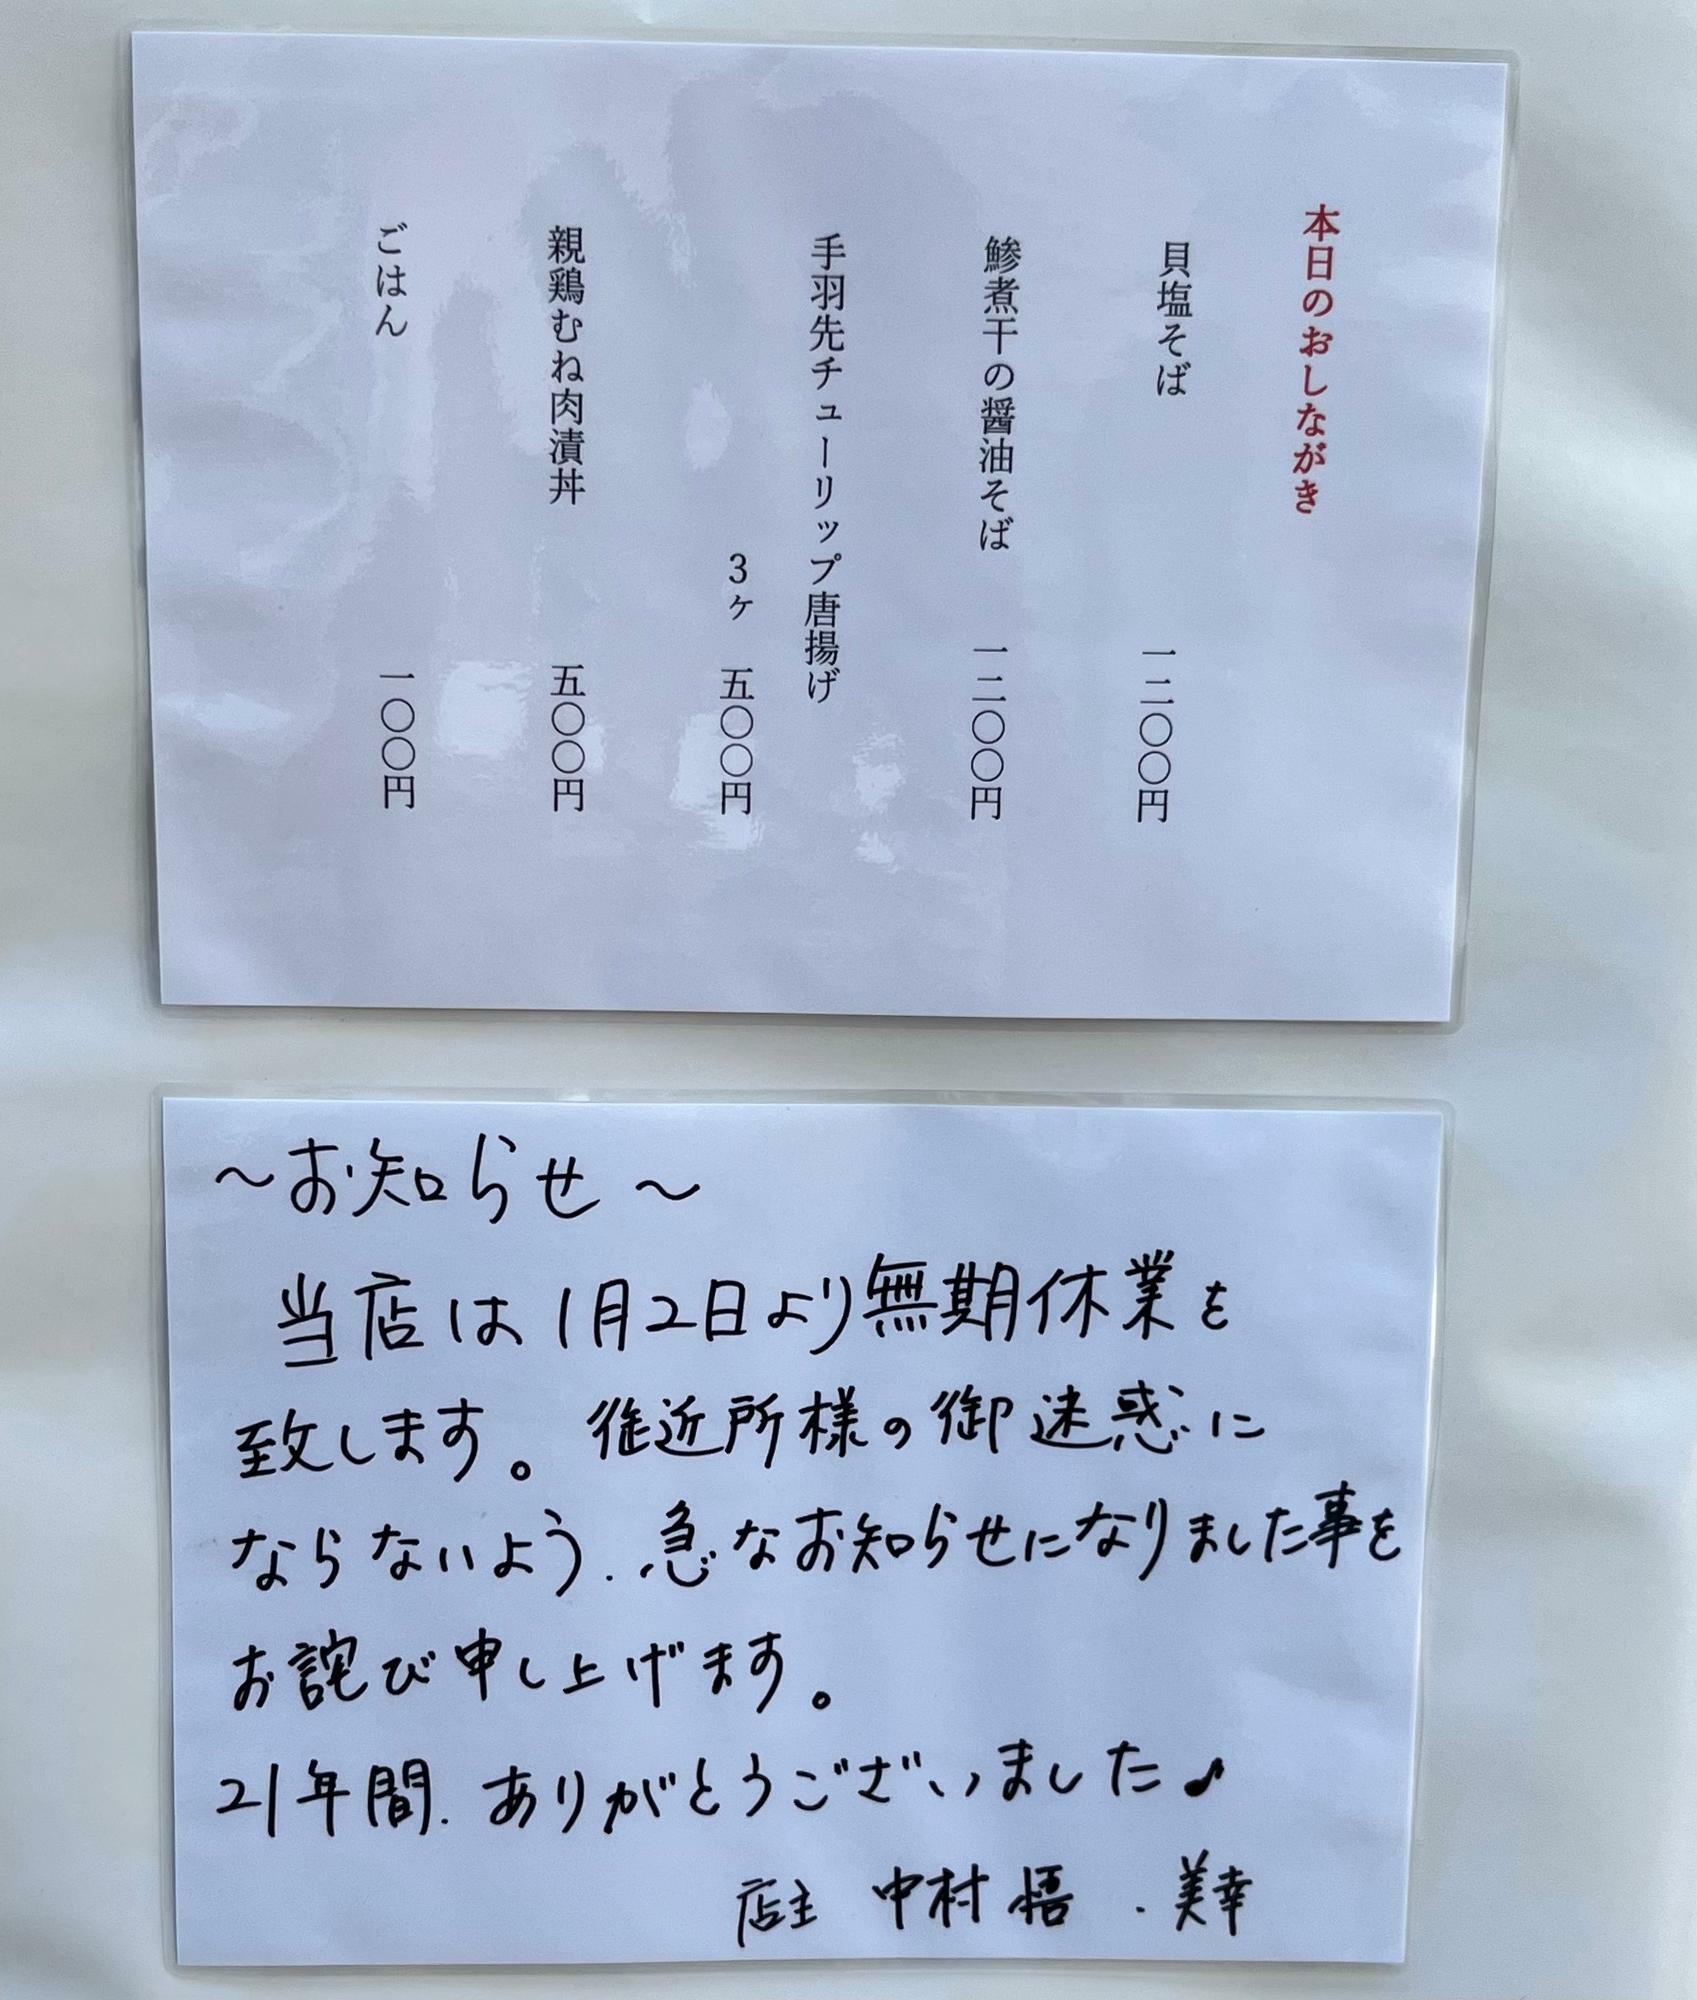 本日のおしながき
貝塩そば 一二〇〇円
鯵煮干の醤油そば 一二〇〇円
手羽先チューリップ唐揚げ
3ヶ 五〇〇円
親鶏むね肉漬丼 五〇〇円
ごはん 一〇〇円
～お知らせ～
当店は1月2日より無期休業を
致します。御近所様の御迷惑に
ならないよう、急なお知らせになりました事を
お詫び申し上げます。
21年間、ありがとうございました♪
店主 中村 悟・美幸